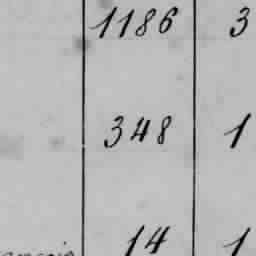 1186 3
348 1
14 1